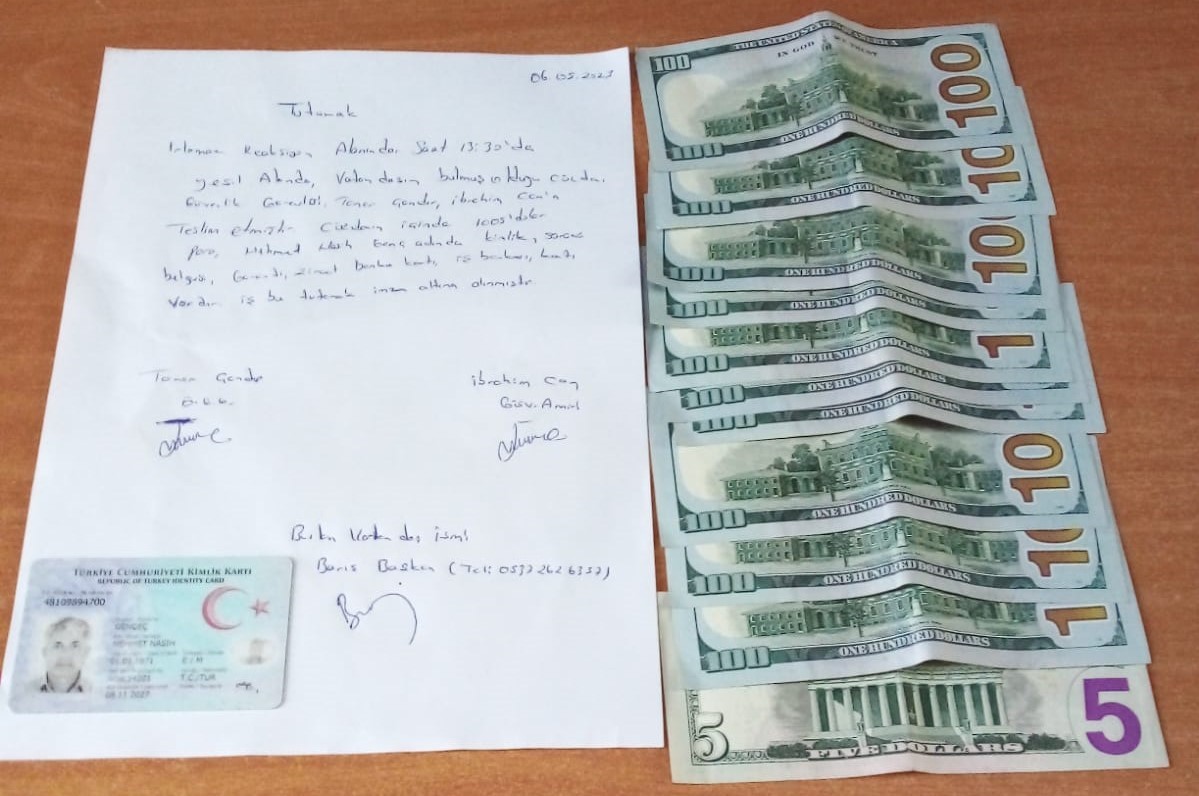 06.05.2023
Tutanak
Alanında Saat 13:30'da
yeşil Alanda, Vatandaşın bulmuş olduğu cüzdanı
Güvenlik Görevlisi, Taner Gender, ibrahim Can'a
Teslim etmiştir. Cüzdanın içinde 1005 dolar
para, Mehmed Nasih Genç adında kimlik, sürücü
belgesi, Garanti, ziraat banka kartı, iş bankası, kartı,
Vardır. iş bu tutanak imza altına alınmıştır
Taner Gender
ibrahim Can
Ö.G.G.
Güv. Amiri
Bulan Vatandaş ismi
Barış Baskın (Tel: 0537 262 6357)
TÜRKİYE CUMHURİYETİ KİMLİK KARTI
REPUBLIC OF TURKEY IDENTITY CARD
48109894700
GENGEÇ
MEHMET NASİH
E / M
T.C./TUR
08.11.2027
THE UNITED STATES OF AMERICA
100
IN GOD WE TRUST
100
ONE HUNDRED DOLLARS
100
100
ONE HUNDRED DOLLARS
10
100
ONE HUNDRED DOLLARS
100
100
ONE HUNDRED DOLLARS
100
ONE HUNDRED DOLLARS
1
100
ONE HUNDRED DOLLARS
100
ONE HUNDRED DOLLARS
100
ONE HUNDRED DOLLARS
10
100
ONE HUNDRED DOLLARS
10
100
ONE HUNDRED DOLLARS
1
5
FIVE DOLLARS
5